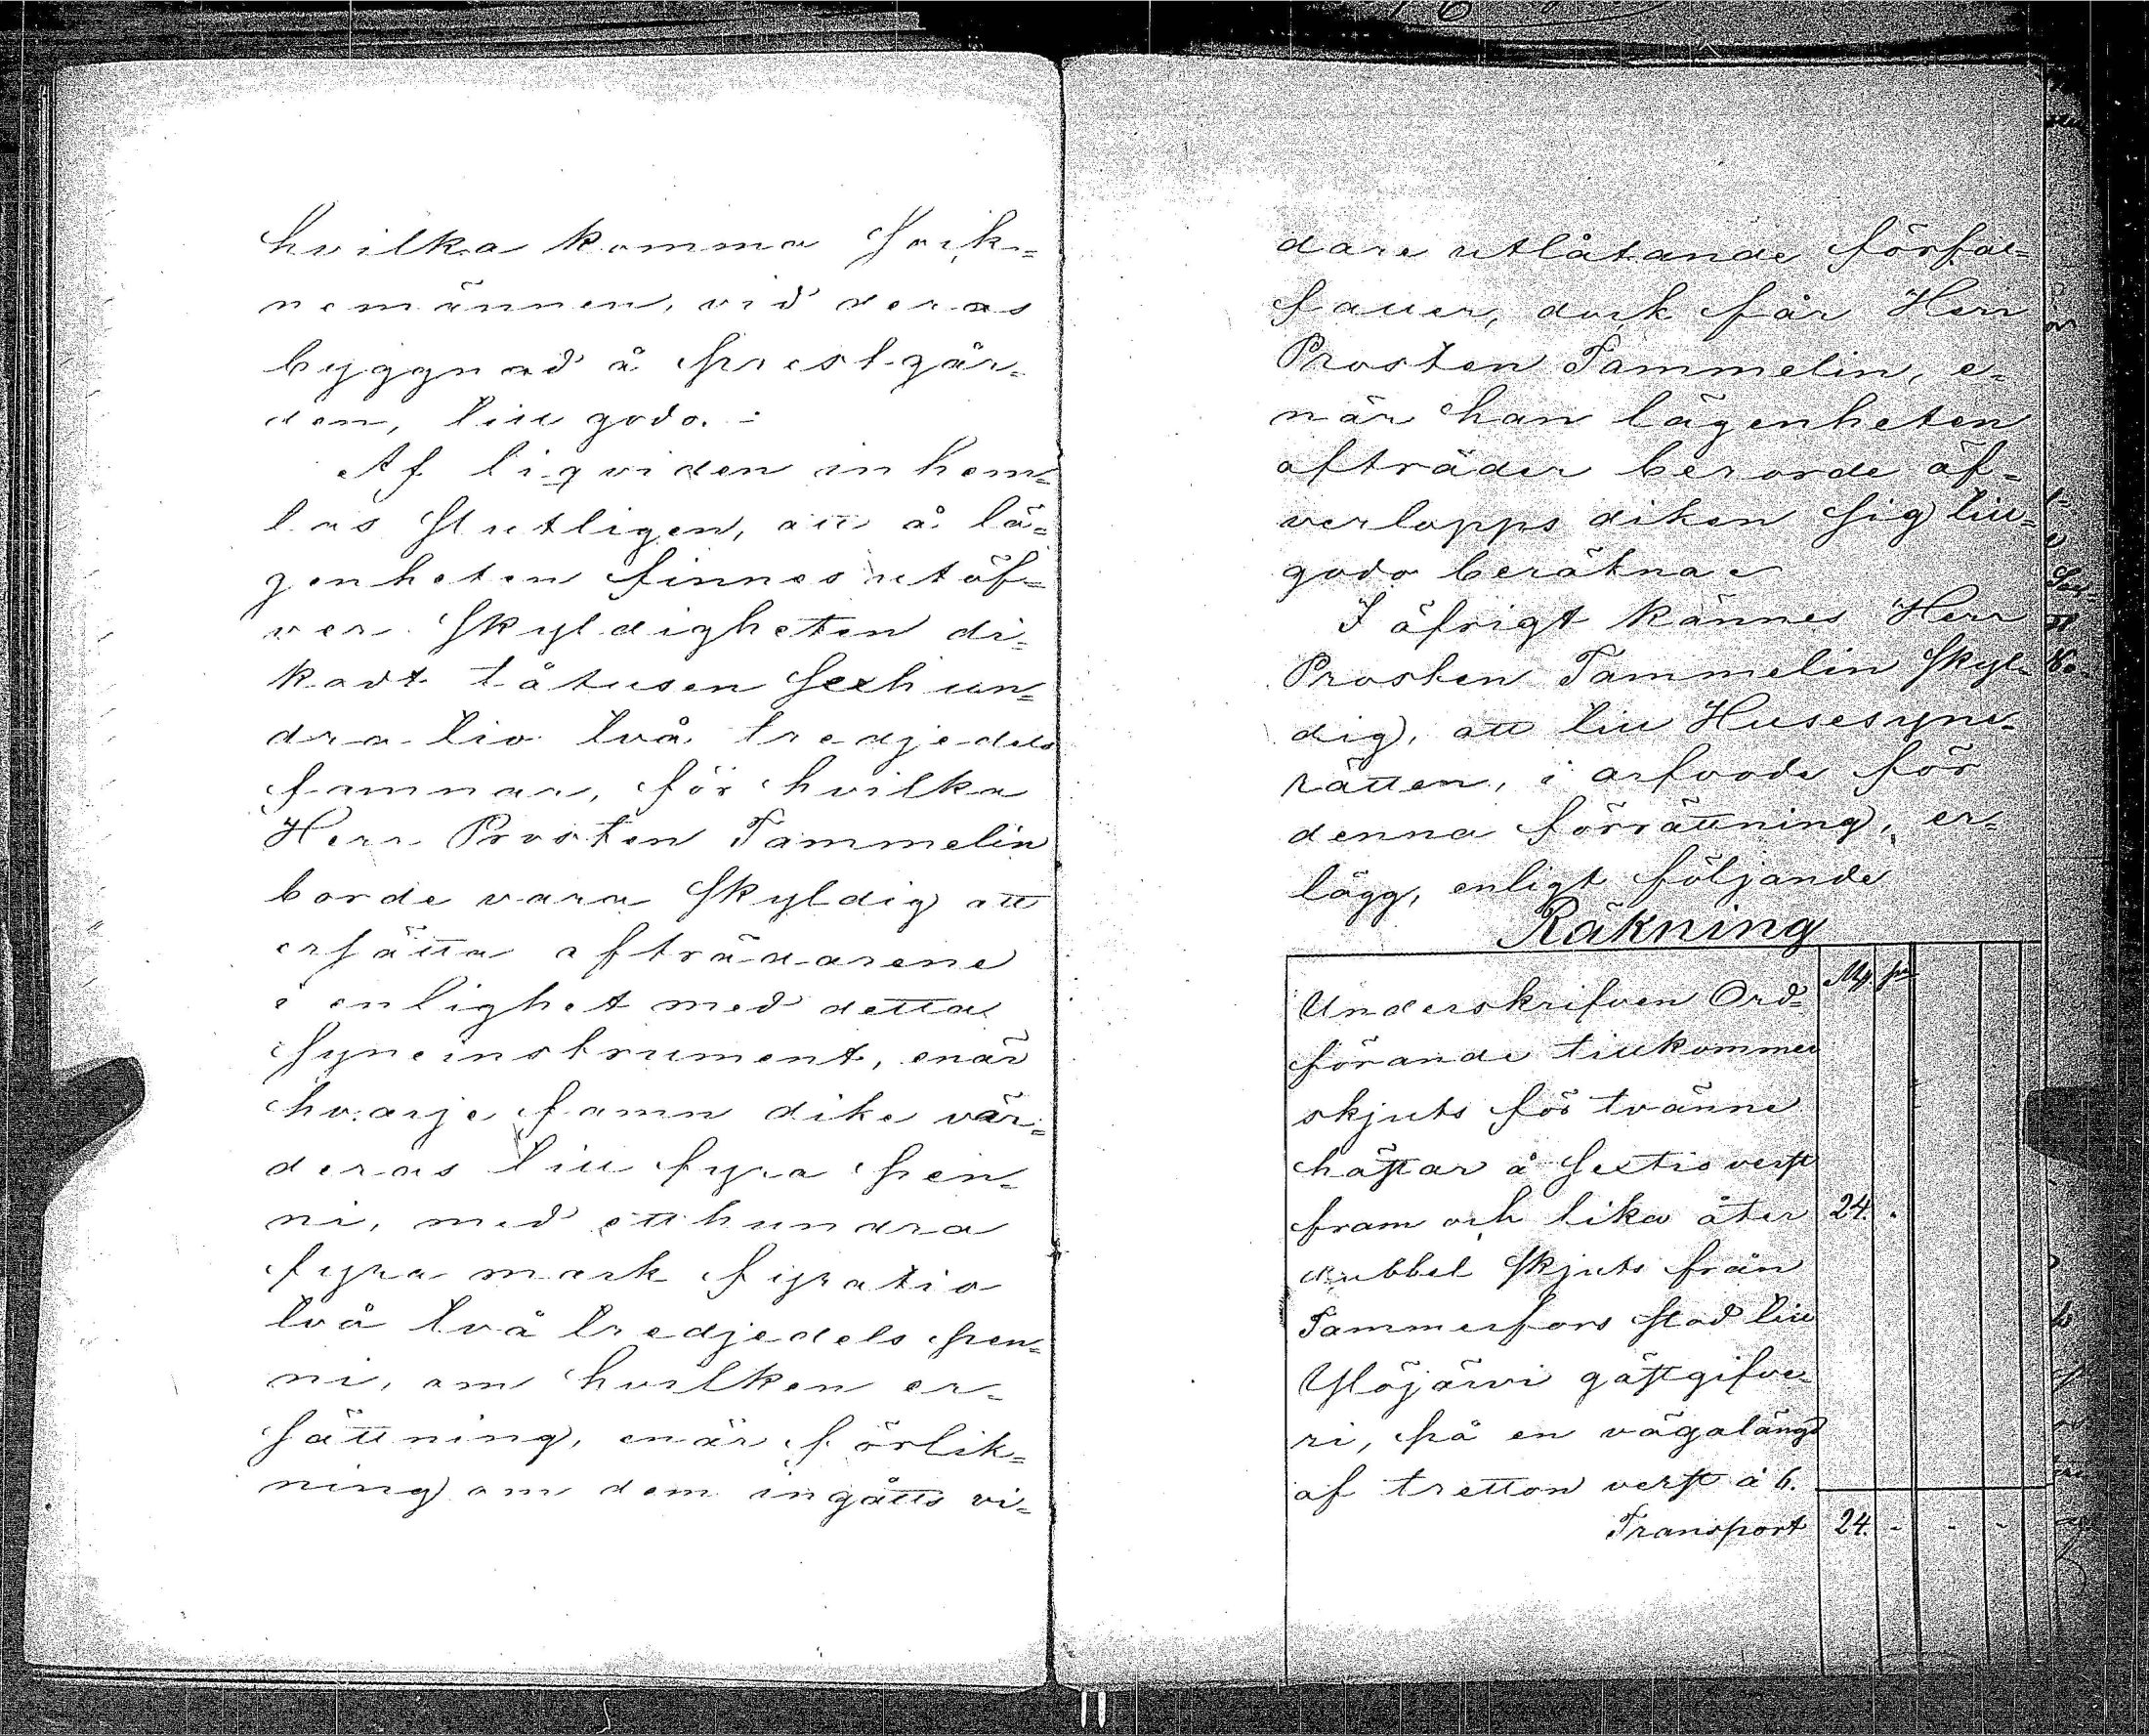 hvilka komma Sock=
nemännen, vid deras
byggnad å prestgår=
den, till godo. -
Af liqviden inhem=
tas slutligen, att å lä=
genheten finnes utöf=
ver skyldigheten di=
kadt tåtusen sexhun=
dra tio två tredjedels
famnar, för hvilka
Herr Prosten Tammelin
borde vara skyldig att
ersätta afträdarene
i enlighet med detta
syneinstrument, enär
hvarje famn dike vär=
deras till fyra pen=
ni, med etthundra
fyra mark fyratio
två två tredjedels pen=
ni, om hvilken er=
sättning, enär förlik=
ning om dem ingåtts vi=
dare utlåtande förfal=
faller, dock får Herr
Prosten Tammelin, e=
när han lägenheten
afträder berorde öf=
verlopps diken sig till=
godo beräkna
I öfrigt kännes Herr
Prosten Tammelin skyl=
dig, att till Husesyns=
rätten, i arfvode för
denna förrättning, er=
lägg, enligt följande
Räkning
Mk pi
Underskrifven Ord=
förande tillkommer
skjuts för tvänne
hästar å sextio verst
fram och lika åter 24. .
dubbel skjuts från
Tammerfors stad till
Ylöjärvi gästgifve=
ri, på en vägalängd
af tretton verst à 6.
Transport 24. - - -